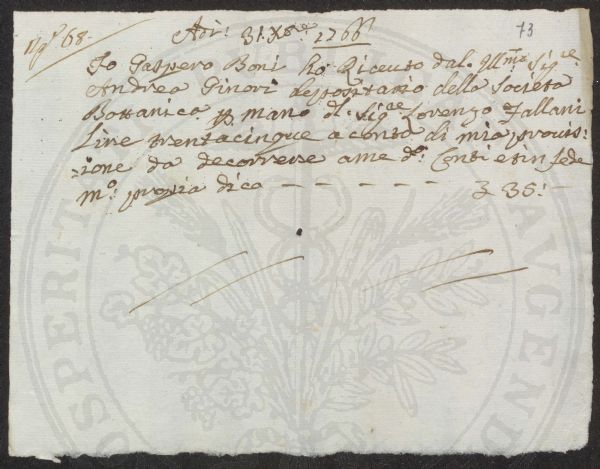 N° 68.
73
Adi: 31. Xbre 1766
Io Gaspero Boni ho Riceuto dal. Ill:mo Sig:re
Andrea Ginori depositario della Società
Bottanica p mano dl. Sig:re Lorenzo Fallani
Lire trentacinque a conto di mia prouis:
:ione da decorrere a me dl: Conti et in fede
m:o propria dico — — — — — — £ 35: —
PROSPERITATI
PUBLICAE
AUGENDAE